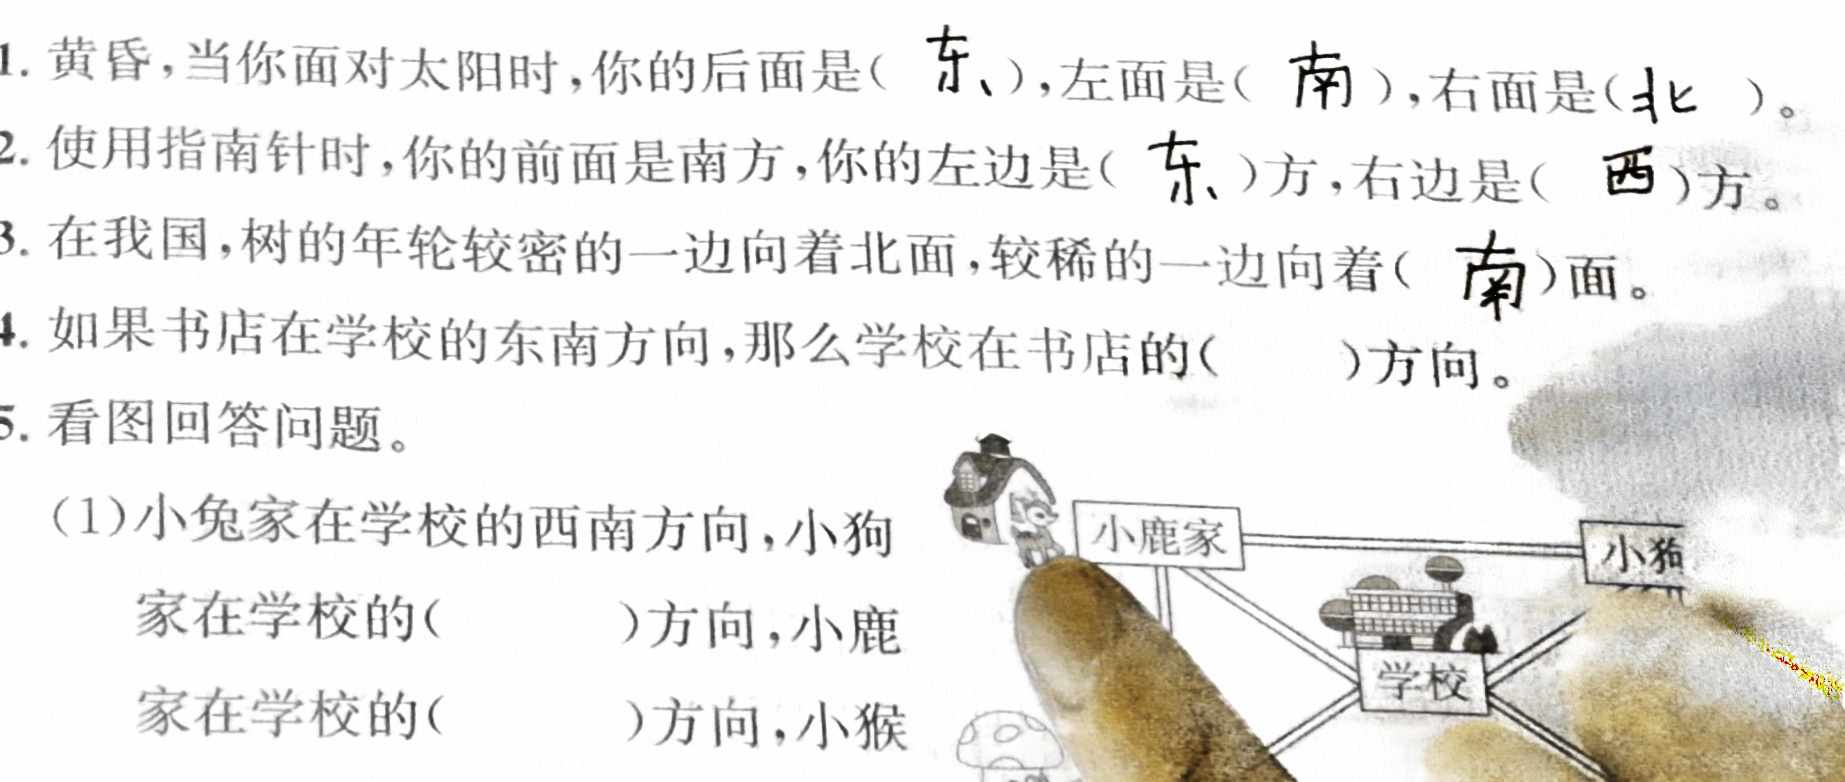 1. 黄昏,当你面对太阳时,你的后面是( 东、),左面是( 南 ),右面是(北 )。
2. 使用指南针时,你的前面是南方,你的左边是( 东、)方,右边是( 西 )方。
3. 在我国,树的年轮较密的一边向着北面,较稀的一边向着( 南 )面。
4. 如果书店在学校的东南方向,那么学校在书店的( )方向。
5. 看图回答问题。
(1)小兔家在学校的西南方向,小狗
家在学校的( )方向,小鹿
家在学校的( )方向,小猴
小鹿家
小狗
学校